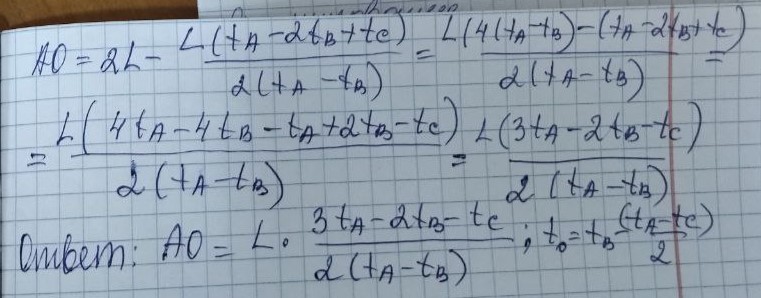 AO = 2L - L(tA - 2tB + tC) / 2(tA - tB) = L(4(tA - tB) - (tA - 2tB + tC) / 2(tA - tB) =
= L(4tA - 4tB - tA + 2tB - tC) / 2(tA - tB) = L(3tA - 2tB - tC) / 2(tA - tB)
Ответ: AO = L · 3tA - 2tB - tC / 2(tA - tB); to = tB - (tA - tC) / 2